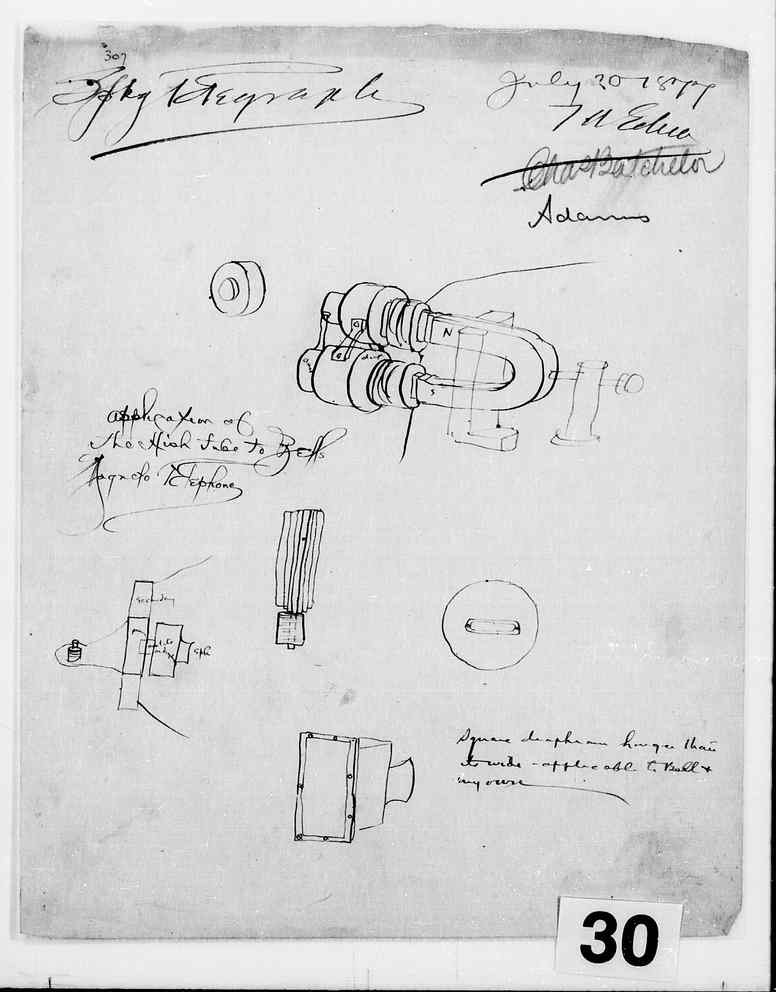 307
Spkg Telegraph
July 30 1877
T A Edison
Chas Batchelor
Adams
N
S
application of
the Hish tube to Bells
Magneto Telephone
Secondary
Spkr
Square diaphram longer than
its wide - applicable to Bell &
my own
30